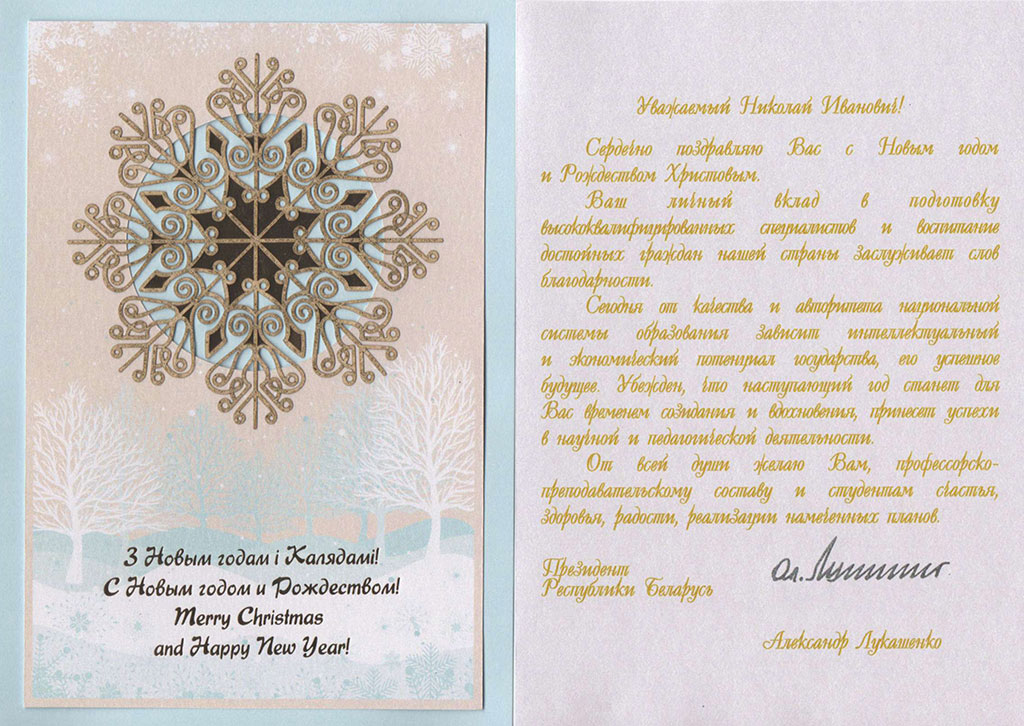 З Новым годам і Калядамі!
С Новым годом и Рождеством!
Merry Christmas
and Happy New Year!
Уважаемый Николай Иванович!
Сердечно поздравляю Вас с Новым годом
и Рождеством Христовым.
Ваш личный вклад в подготовку
высококвалифицированных специалистов и воспитание
достойных граждан нашей страны заслуживает слов
благодарности.
Сегодня от качества и авторитета национальной
системы образования зависит интеллектуальный
и экономический потенциал государства, его успешное
будущее. Убежден, что наступающий год станет для
Вас временем созидания и вдохновения, принесет успехи
в научной и педагогической деятельности.
От всей души желаю Вам, профессорско-
преподавательскому составу и студентам счастья,
здоровья, радости, реализации намеченных планов.
Президент
Республики Беларусь
Александр Лукашенко